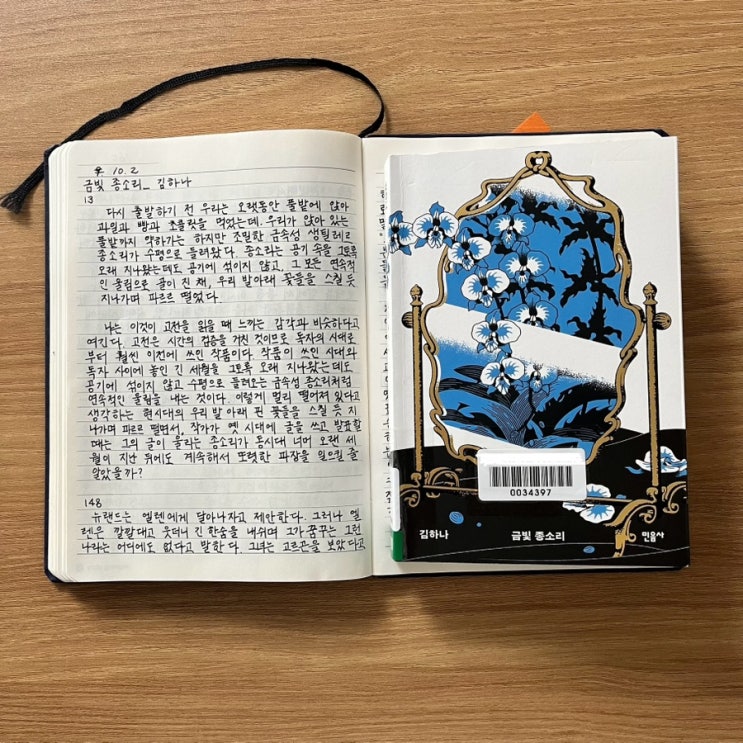 10.2
금빛 종소리_ 김하나
13
다시 출발하기 전 우리는 오랫동안 풀밭에 앉아
과일과 빵과 초콜릿을 먹었는데. 우리가 앉아 있는
풀밭까지 약하기는 하지만 조밀한 금속성 생틸레르
종소리가 수평으로 들려왔다. 종소리는 공기 속을 그토록
오래 지나왔는데도 공기에 섞이지 않고, 그 모든 연속적
인 울림으로 골이 진 채, 우리 발아래 꽃들을 스칠 듯
지나가며 파르르 떨었다.
나는 이것이 고전을 읽을 때 느끼는 감각과 비슷하다고
여긴다. 고전은 시간의 검증을 거친 것이므로 독자의 시대로
부터 훨씬 이전에 쓰인 작품이다. 작품이 쓰인 시대와
독자 사이에 놓인 긴 세월을 그토록 오래 지나왔는데도
공기에 섞이지 않고 수평으로 들려오는 금속성 종소리처럼
연속적인 울림을 내는 것이다. 이렇게 멀리 떨어져 있다고
생각하는 현시대의 우리 발 아래 핀 꽃들을 스칠 듯 지
나가며 파르르 떨면서, 작가가 옛 시대에 글을 쓰고 발표할
때는 그의 글이 울리는 종소리가 동시대 너머 오랜 세
월이 지난 뒤에도 계속해서 또렷한 파장을 일으킬 줄
알았을까?
148
뉴랜드는 엘렌에게 달아나자고 제안한다. 그러나 엘
렌은 깔깔대고 웃더니 긴 한숨을 내쉬며 그가 꿈꾸는 그런
나라는 어디에도 없다고 말한다. 그녀는 고르곤을 보았다고
0034397
김하나
금빛 종소리
민음사